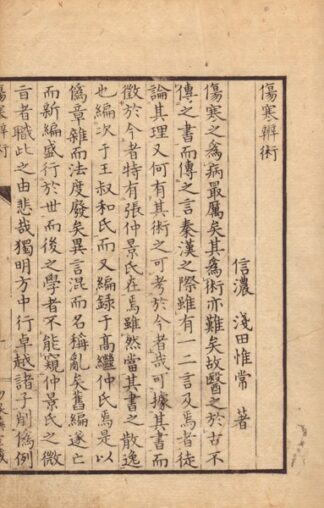 傷寒辨術
信濃 淺田惟常 著
傷寒之爲病最厲矣其爲術亦難矣故醫之於古不
傳之書而傳之言秦漢之際雖有一二言及焉者徒
論其理又何有其術之可考於今者哉可據其書而
徵於今者特有張仲景氏在焉雖然當其書之散逸
也編次于王叔和氏而又編録于高繼仲氏焉是以
僞章雜而法度廢矣異言混而名稱亂矣舊編遂亡
而新編盛行於世而後之學者不能窺仲景氏之微
旨者職此之由悲哉獨明方中行卓越諸子削僞例